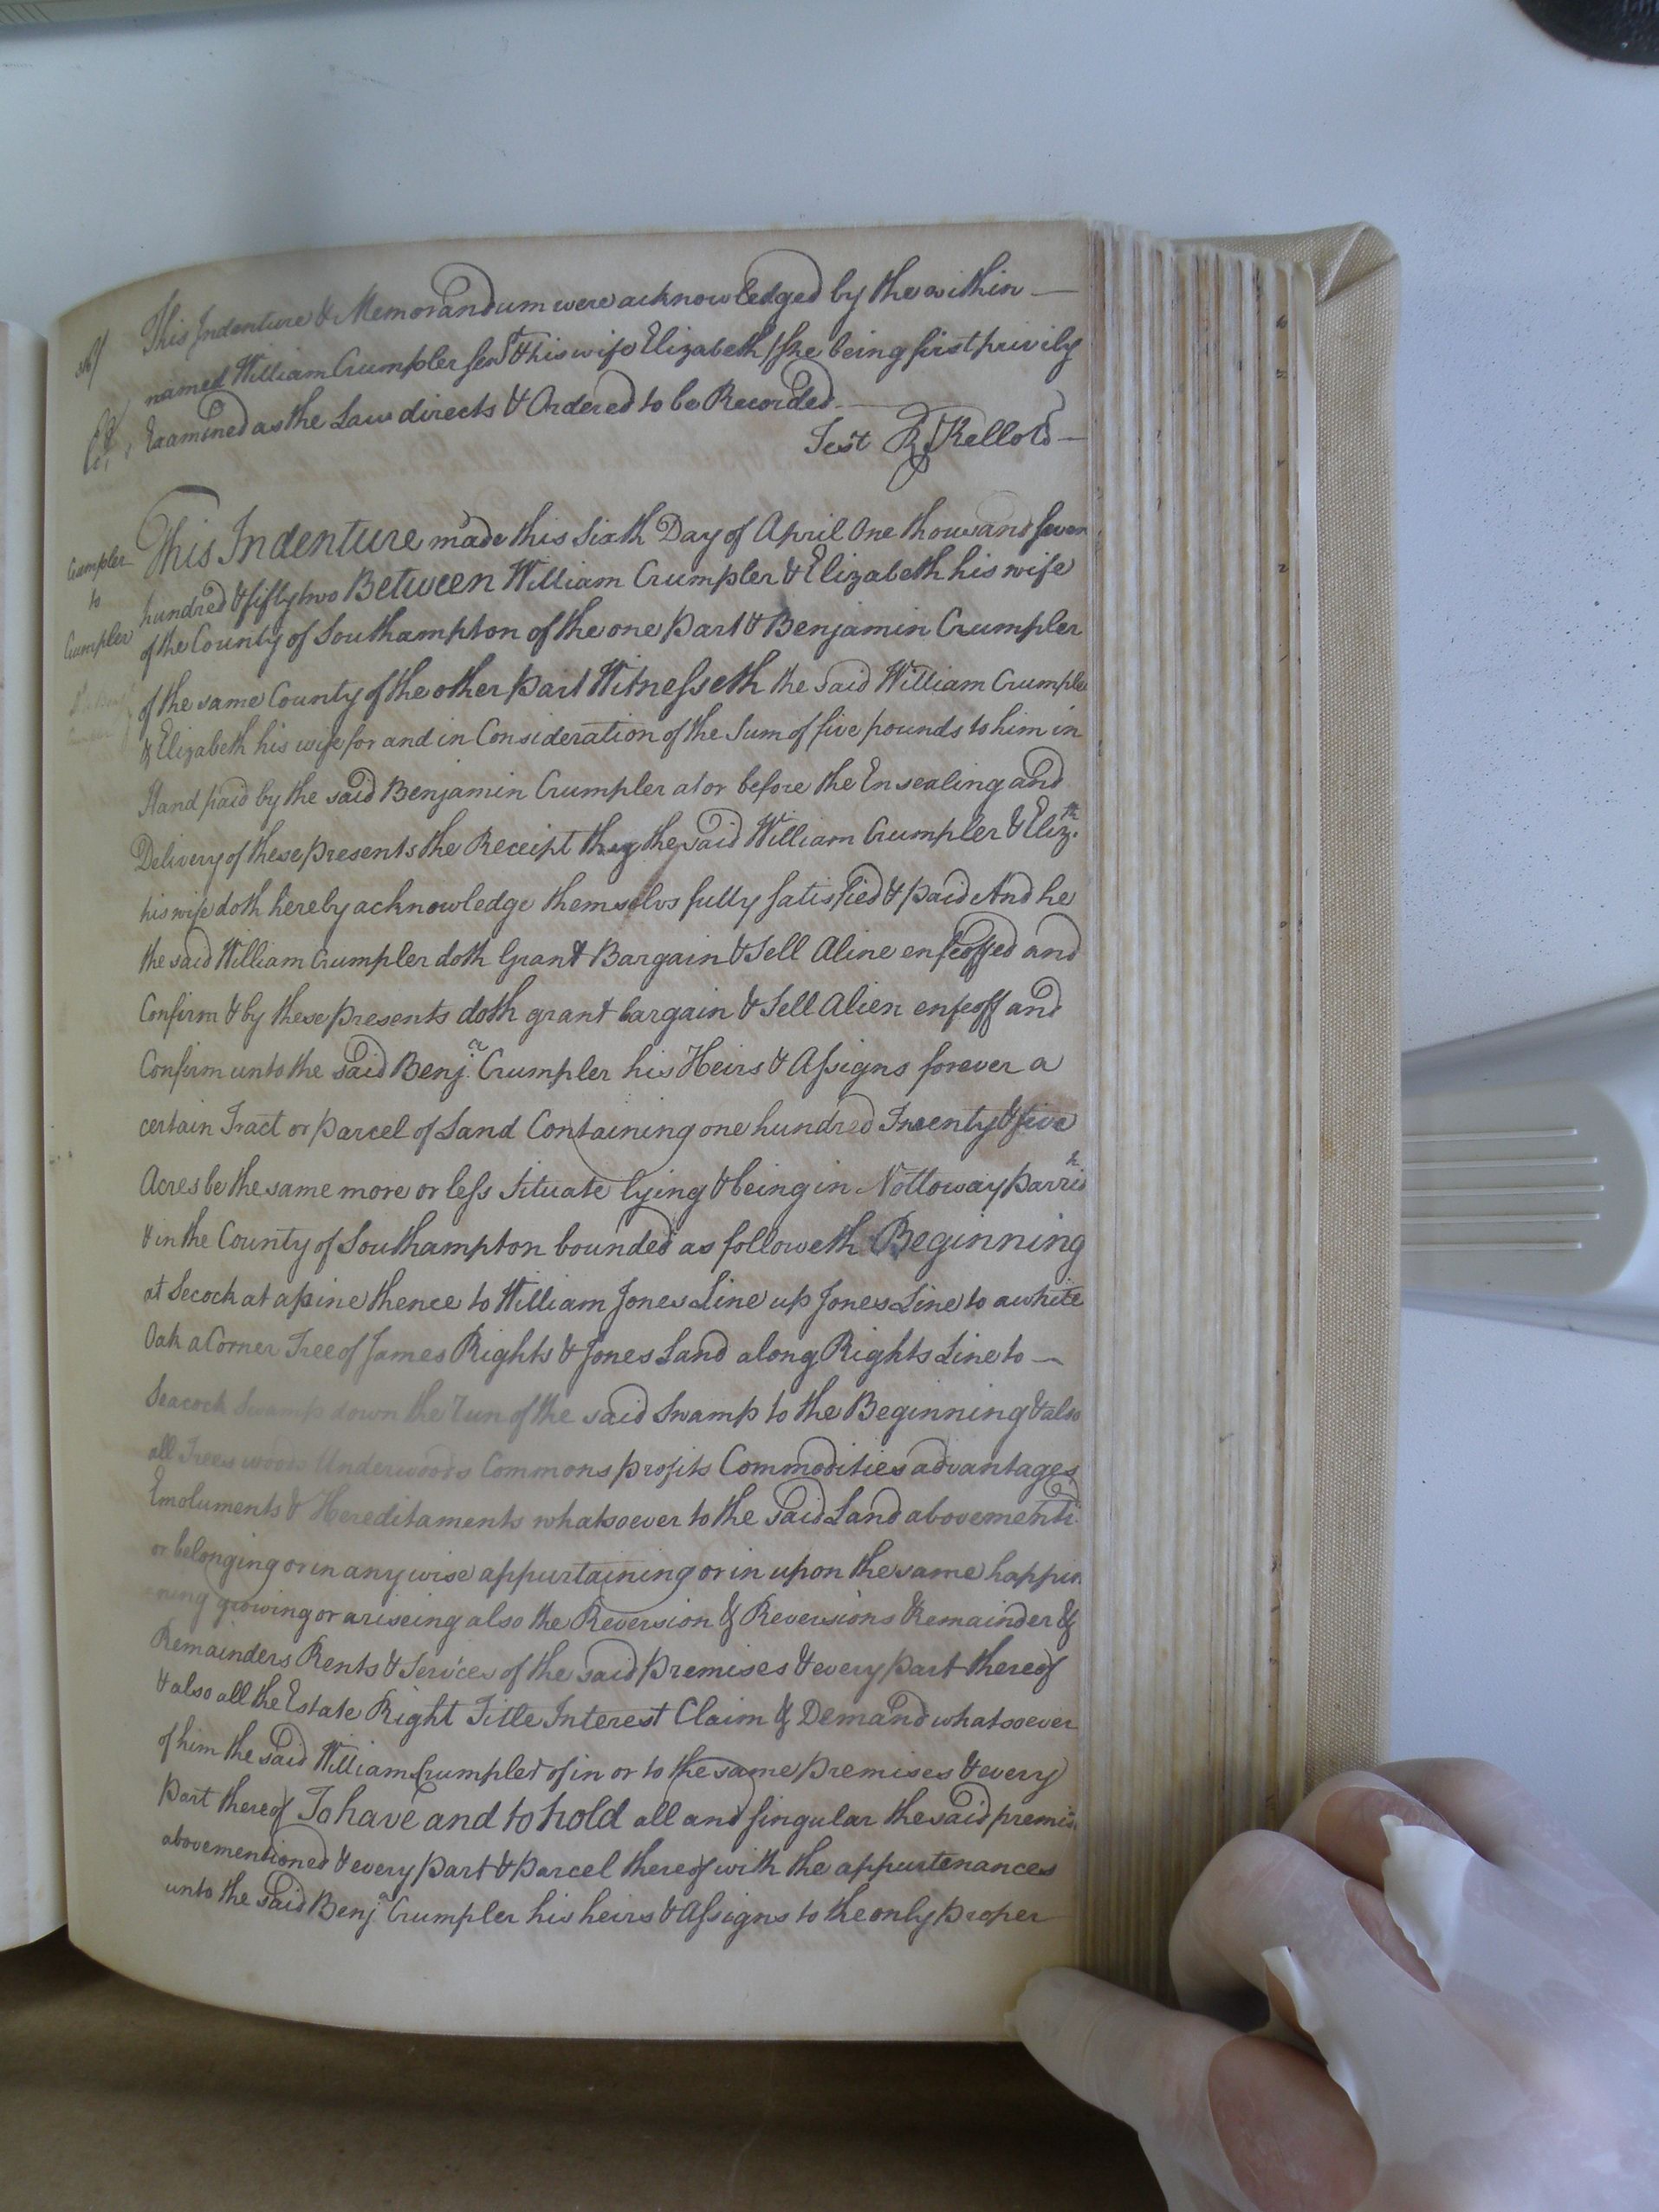 This Indenture & Memorandum were acknowledged by the within
named William Crumpler Senr & his wife Elizabeth she being first privily
Examined as the Law directs & Ordered to be Recorded
Test R Kello
Crumpler
to
Crumpler
This Indenture made this Sixth Day of April One thousand seven
hundred & fifty two Between William Crumpler & Elizabeth his wife
of the County of Southampton of the one part & Benjamin Crumpler
of the same County of the other part Witnesseth the said William Crumple
& Elizabeth his wife for and in Consideration of the Sum of five pounds to him in
Hand paid by the said Benjamin Crumpler at or before the Ensealing and
Delivery of these presents the Receipt they the said William Crumpler & Eliz.th
his wife doth hereby acknowledge themselvs fully satisfied & paid And he
the said William Crumpler doth Grant Bargain & Sell Aline enfeoffed and
Confirm & by these presents doth grant bargain & Sell Alien enfeoff and
Confirm unto the said Benj.a Crumpler his Heirs & Assigns forever a
certain Tract or parcel of Land Containing one hundred Twenty & five
Acres be the same more or less Situate lying & being in Nottoway parrish
& in the County of Southampton bounded as followeth Beginning
at Secock at a pine thence to William Jones Line up Jones Line to a white
Oak a Corner Tree of James Rights & Jones Land along Rights Line to
Seacock Swamp down the Run of the said Swamp to the Beginning & also
all Trees woods Underwoods Commons profits Commodities advantages
Emoluments & Hereditaments whatsoever to the said Land abovementi
or belonging or in any wise appurtaining or in upon the same happin
ning growing or ariseing also the Reversion & Reversions Remainder &
Remainders Rents & Services of the said premises & every part thereof
& also all the Estate Right Title Interest Claim & Demand whatsoever
of him the said William Crumpler of in or to the same premises & every
part thereof To have and to hold all and singular the said premis
abovementioned & every part & parcel thereof with the appurtenances
unto the said Benj.a Crumpler his heirs & Assigns to the only proper